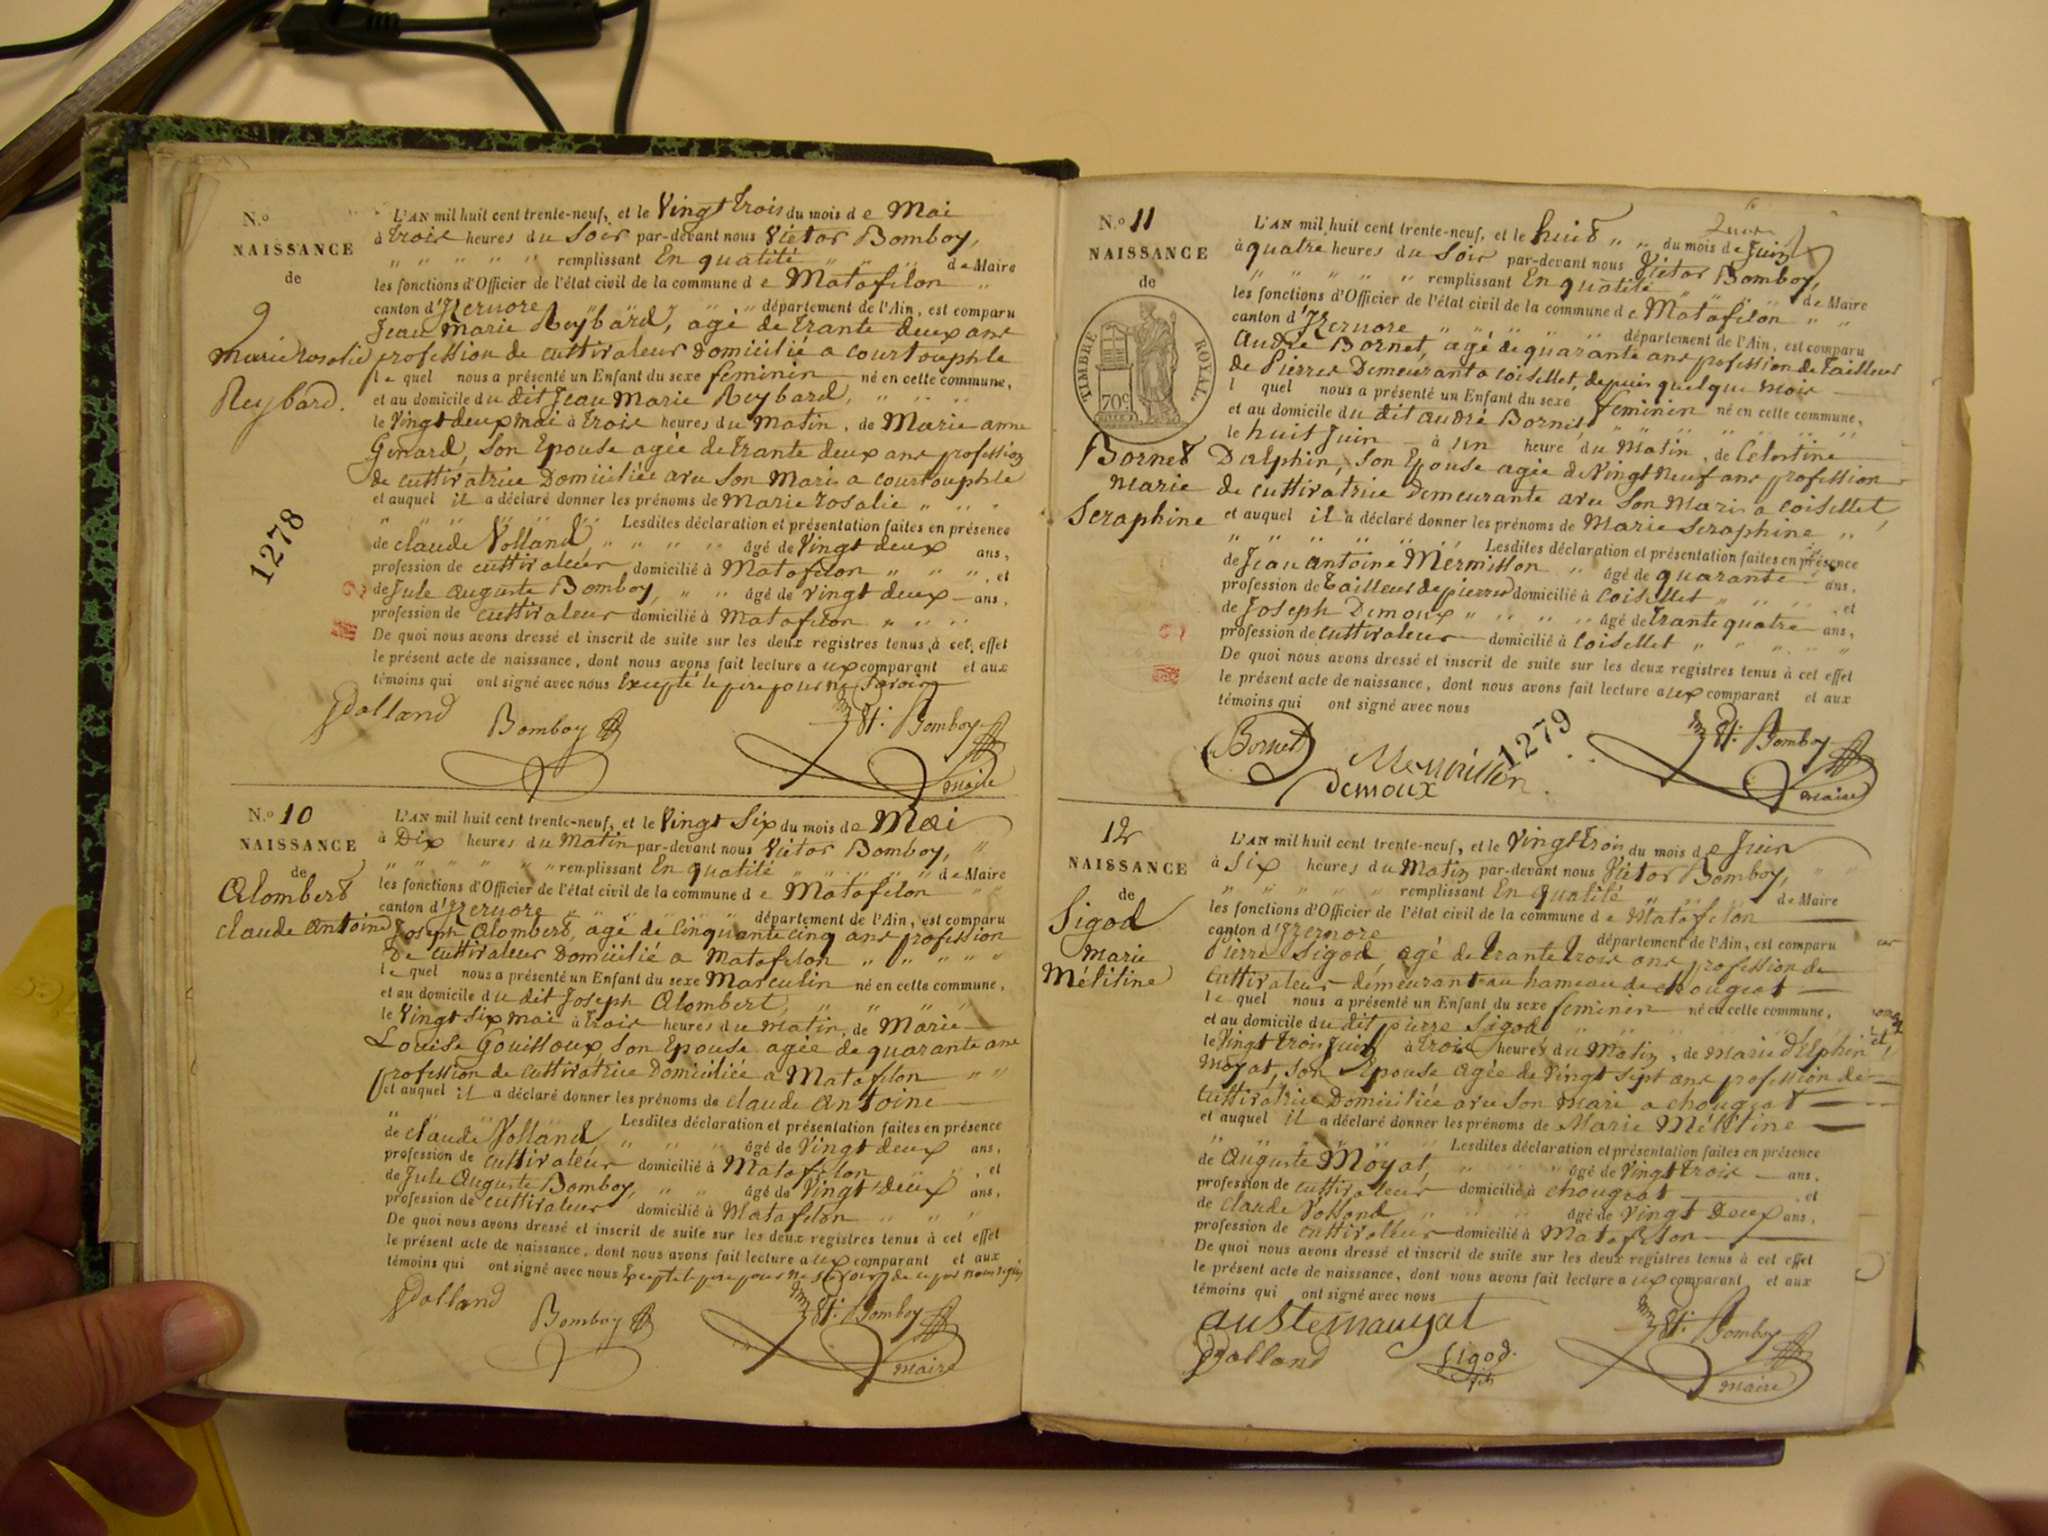 N.o
NAISSANCE
de
9
Marie rosalie
Reybard.
1278
L'AN mil huit cent trente-neuf, et le Vingt trois du mois de Mai
à trois heures du Soir par-devant nous Victor Bomboy,
" " " " " remplissant En qualité " " " de Maire
les fonctions d'Officier de l'état civil de la commune de Matafelon "
canton d'Izernore " " département de l'Ain, est comparu
Jean Marie Reybard, agé de trante deux ans
profession de cultivateur Domicilié a courtouphle
le quel nous a présenté un Enfant du sexe feminin né en cette commune,
et au domicile du dit Jean Marie Reybard, " " "
le Vingt deux mai à trois heures du Matin, de Marie anne
Girard, Son Epouse agée de trante deux ans profession
de cultivatrice Domiciliée avec Son Mari a courtouphle
et auquel il a déclaré donner les prénoms de Marie rosalie " " "
" " " " " Lesdites déclaration et présentation faites en présence
de claude Volland, " " " " âgé de Vingt deux ans,
profession de cultivateur domicilié à Matafelon " " " , et
de Jule auguste Bomboy, " " âgé de vingt deux ans,
profession de cultivateur domicilié à Matafelon " " "
De quoi nous avons dressé et inscrit de suite sur les deux registres tenus à cet effet
le présent acte de naissance, dont nous avons fait lecture aux comparant et aux
témoins qui ont signé avec nous Excepté le pere pour ne Savoir
Volland Bomboy Bomboy
maire
N.o 10
NAISSANCE
de
Alombert
claude Antoine
L'AN mil huit cent trente-neuf, et le Vingt Six du mois de Mai
à Dix heures du Matin par-devant nous Victor Bomboy, "
" " " " " remplissant En qualité " " " de Maire
les fonctions d'Officier de l'état civil de la commune de Matafelon " "
canton d'Izernore " " département de l'Ain, est comparu
Joseph Alombert, agé de Cinquante cinq ans profession
De cultivateur Domicilié a Matafelon " " " " "
le quel nous a présenté un Enfant du sexe Masculin né en cette commune,
et au domicile du dit Joseph Alombert, " " "
le Vingt Six mai à trois heures du matin, de Marie
Louise Gouilloux, Son Epouse agée de quarante ans
profession de cultivatrice Domiciliée a Matafelon " "
et auquel il a déclaré donner les prénoms de claude Antoine
" " " " Lesdites déclaration et présentation faites en présence
de claude Volland, " " " âgé de Vingt deux ans,
profession de cultivateur domicilié à Matafelon " " , et
de Jule Auguste Bomboy, " " âgé de Vingt deux ans,
profession de cultivateur domicilié à Matafelon " " "
De quoi nous avons dressé et inscrit de suite sur les deux registres tenus à cet effet
le présent acte de naissance, dont nous avons fait lecture aux comparant et aux
témoins qui ont signé avec nous Excepté le pere pour ne Savoir de ce par nous requis
Volland Bomboy Bomboy
maire
N.o 11
NAISSANCE
de
TIMBRE ROYAL
70c
Bornet
Marie
Seraphine
L'AN mil huit cent trente-neuf, et le huit " " du mois de Juin
à quatre heures du Soir par-devant nous Victor Bomboy,
" " " " " remplissant En qualité " " de Maire
les fonctions d'Officier de l'état civil de la commune de Matafelon " "
canton d'Izernore " " département de l'Ain, est comparu
André Bornet, agé de quarante ans profession de Tailleur
de Pierres Demeurant a coisellet, depuis quelque mois
l quel nous a présenté un Enfant du sexe feminin né en cette commune,
et au domicile du dit andré Bornet " " " "
le huit Juin à un heure du Matin, de Celestine
Dalphin, Son Epouse agée de Vingt Neuf ans profession
de cultivatrice Demeurante avec Son Mari a coisellet,
et auquel il a déclaré donner les prénoms de Marie Seraphine "
" " " " " Lesdites déclaration et présentation faites en présence
de Jean Antoine Mermillon " âgé de quarante ans,
profession de Tailleur de pierres domicilié à Coisellet " " " , et
de Joseph Demoux " " " " âgé de trante quatre ans,
profession de cultivateur domicilié à Coisellet " " " " "
De quoi nous avons dressé et inscrit de suite sur les deux registres tenus à cet effet
le présent acte de naissance, dont nous avons fait lecture aux comparant et aux
témoins qui ont signé avec nous
Bornet Mermillon 1279 Bomboy
Demoux maire
12
NAISSANCE
de
Sigod
Marie
Mélitine
L'AN mil huit cent trente-neuf, et le Vingt trois du mois de Juin
à Six heures du Matin par-devant nous Victor Bomboy, " "
" " " " " remplissant En qualité " " de Maire
les fonctions d'Officier de l'état civil de la commune de Matafelon
canton d'Izernore département de l'Ain, est comparu
Pierre Sigod, agé de trante trois ans profession de
cultivateur demeurant au hameau de chougeat
le quel nous a présenté un Enfant du sexe feminin né en cette commune,
et au domicile du dit pierre Sigod " " " "
le Vingt trois Juin à trois heures du Matin, de Marie Delphine
Moyat, Son Epouse agée de Vingt Sept ans profession de
cultivatrice Domiciliée avec Son Mari a chougeat
et auquel il a déclaré donner les prénoms de Marie Mélitine
" " " " Lesdites déclaration et présentation faites en présence
de Auguste Moyat, " " " âgé de Vingt trois ans,
profession de cultivateur domicilié à chougeat , et
de claude Volland " " " " âgé de Vingt Deux ans,
profession de cultivateur domicilié à Matafelon
De quoi nous avons dressé et inscrit de suite sur les deux registres tenus à cet effet
le présent acte de naissance, dont nous avons fait lecture aux comparant et aux
témoins qui ont signé avec nous
Bomboy
Volland Sigod. maire